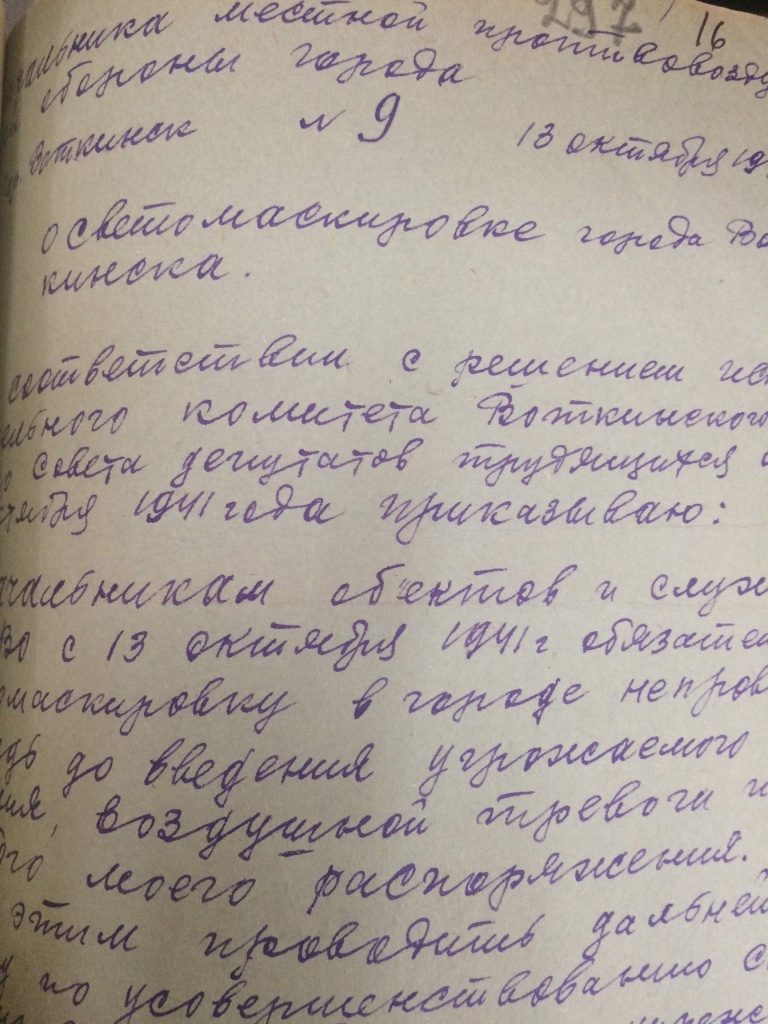 297 16
местной противовозду
обороны города
Воткинск № 9 13 октября 19
о светомаскировке города Во
кинска.
соответствии с решением ис
ельного комитета Воткинского
о совета депутатов трудящихся
тября 1941 года приказываю:
чальникам обектов и служ
ВО с 13 октября 1941 г обязател
омаскировку в городе непров
едь до введения угрожаемого
ния, воздушной тревоги и
ого моего распоряжения.
этим проводить дальней
у по усовершенствованию с